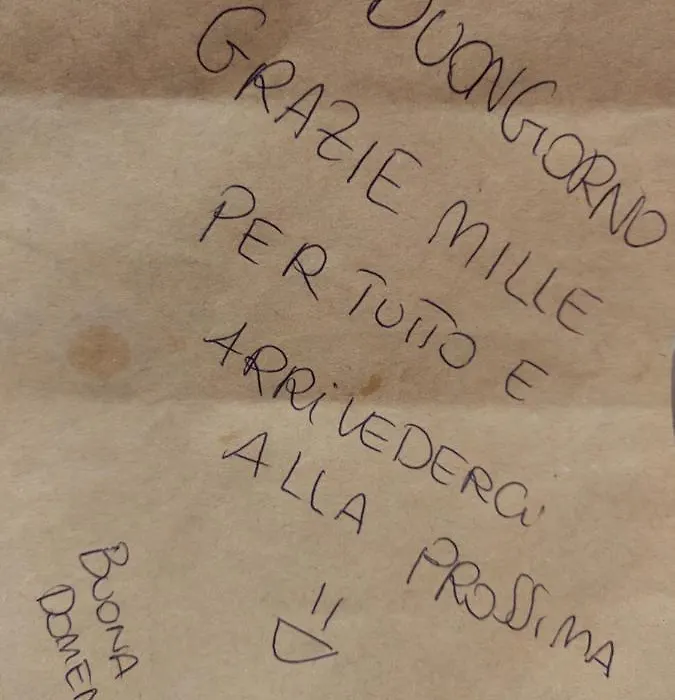 BUONGIORNO
GRAZIE MILLE
PER TUTTO E
ARRIVEDERCI
ALLA PROSSIMA
BUONA
DOMEN